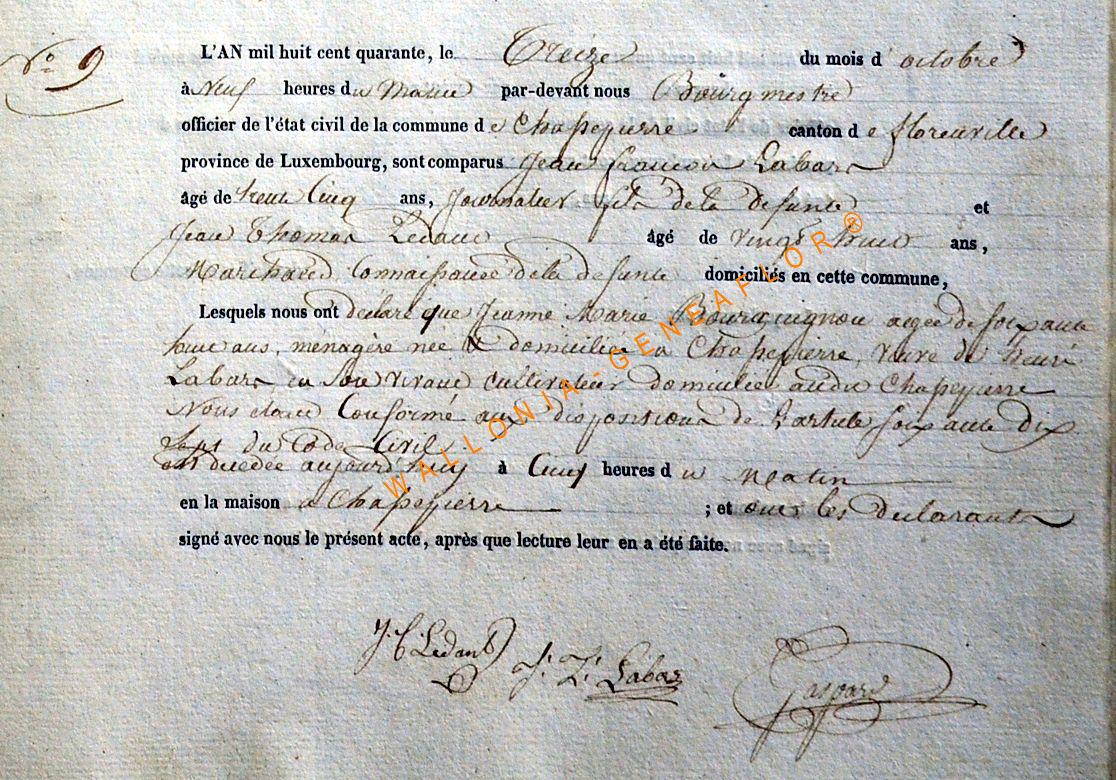 No 9
L'AN mil huit cent quarante, le Treize du mois d' octobre
à Neuf heures du Matin par-devant nous Bourgmestre
officier de l'état civil de la commune de Chapepierre canton de florenville
province de Luxembourg, sont comparus Jean françois Labar
âgé de trente Cinq ans, Journalier fils de la defunte et
Jean Thomas Ledant âgé de vingt huit ans,
Marchand Connaissance de la defunte domiciliés en cette commune,
Lesquels nous ont déclaré que Jeanne Marie Bourguignon agée de soixante
huit ans, ménagère née & domiciliée a Chapepierre, veuve de henri
Labar en son vivant cultivateur domicilié audit Chapepierre
Nous etant Conformé aux dispositions de L'article soixante dix
sept du Code Civil
est decedée aujourd'huy à Cinq heures du Matin
en la maison a Chapepierre ; et ont les declarants
signé avec nous le présent acte, après que lecture leur en a été faite.
J. T. Ledant J. F. Labar Gaspard
WALLONIA-GENEAFLOR®